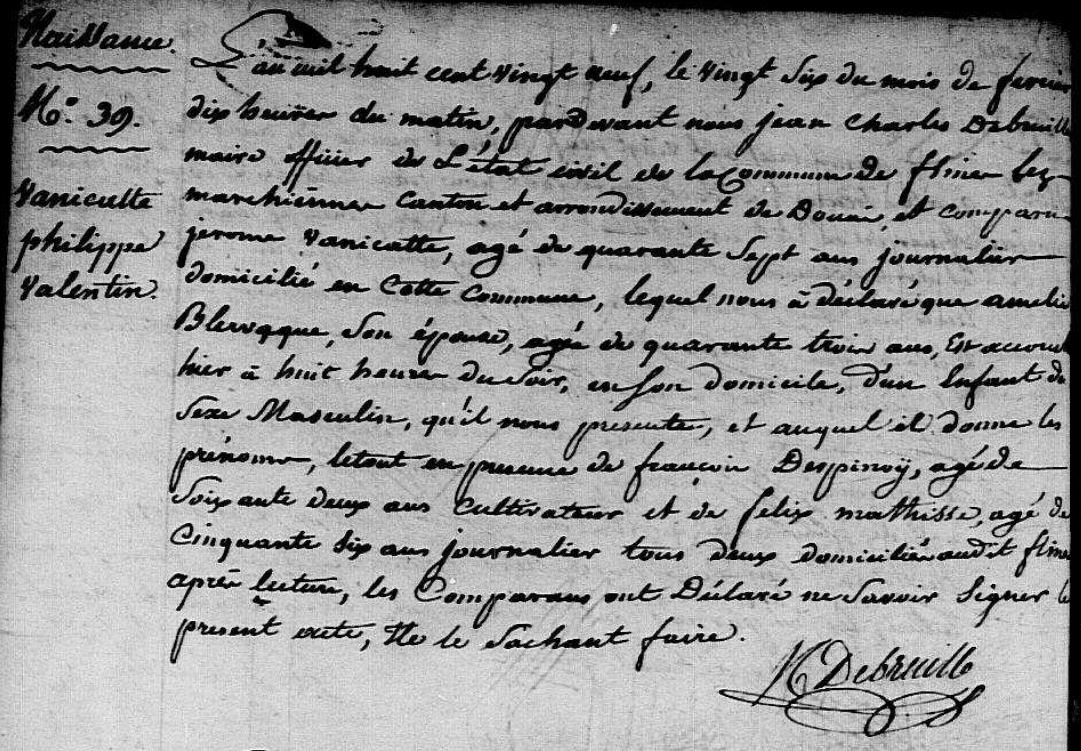 Naissance.
N.o 39.
Vanicatte
philippe
Valentin.
L'an mil huit cent vingt neuf, le vingt six du mois de fevrier
dix heures du matin, pardevant nous jean Charles Debreuille
maire officier de L'état civil de la Commune de flines lez
marchiennes Canton et arrondissement de Douai, est comparu
jerome Vanicatte, agé de quarante sept ans journalier
domicilié en Cette Commune, lequel nous à déclaré que amelie
son épouse, agée de quarante trois ans, Est accouché
hier à huit heures du soir, en son domicile, d'un Enfant de
Sexe Masculin, qu'il nous presente, et auquel il donne les
prénoms, letout en presence de francois Despinoÿ, agé de
Soixante deux ans Cultivateur et de felix mathisse, agé de
Cinquante Six ans journalier tous deux domiciliés audit flines
après lecture, les Comparans ont Déclaré ne Savoir Signer le
present acte, Ne le Sachant faire.
Debreuille